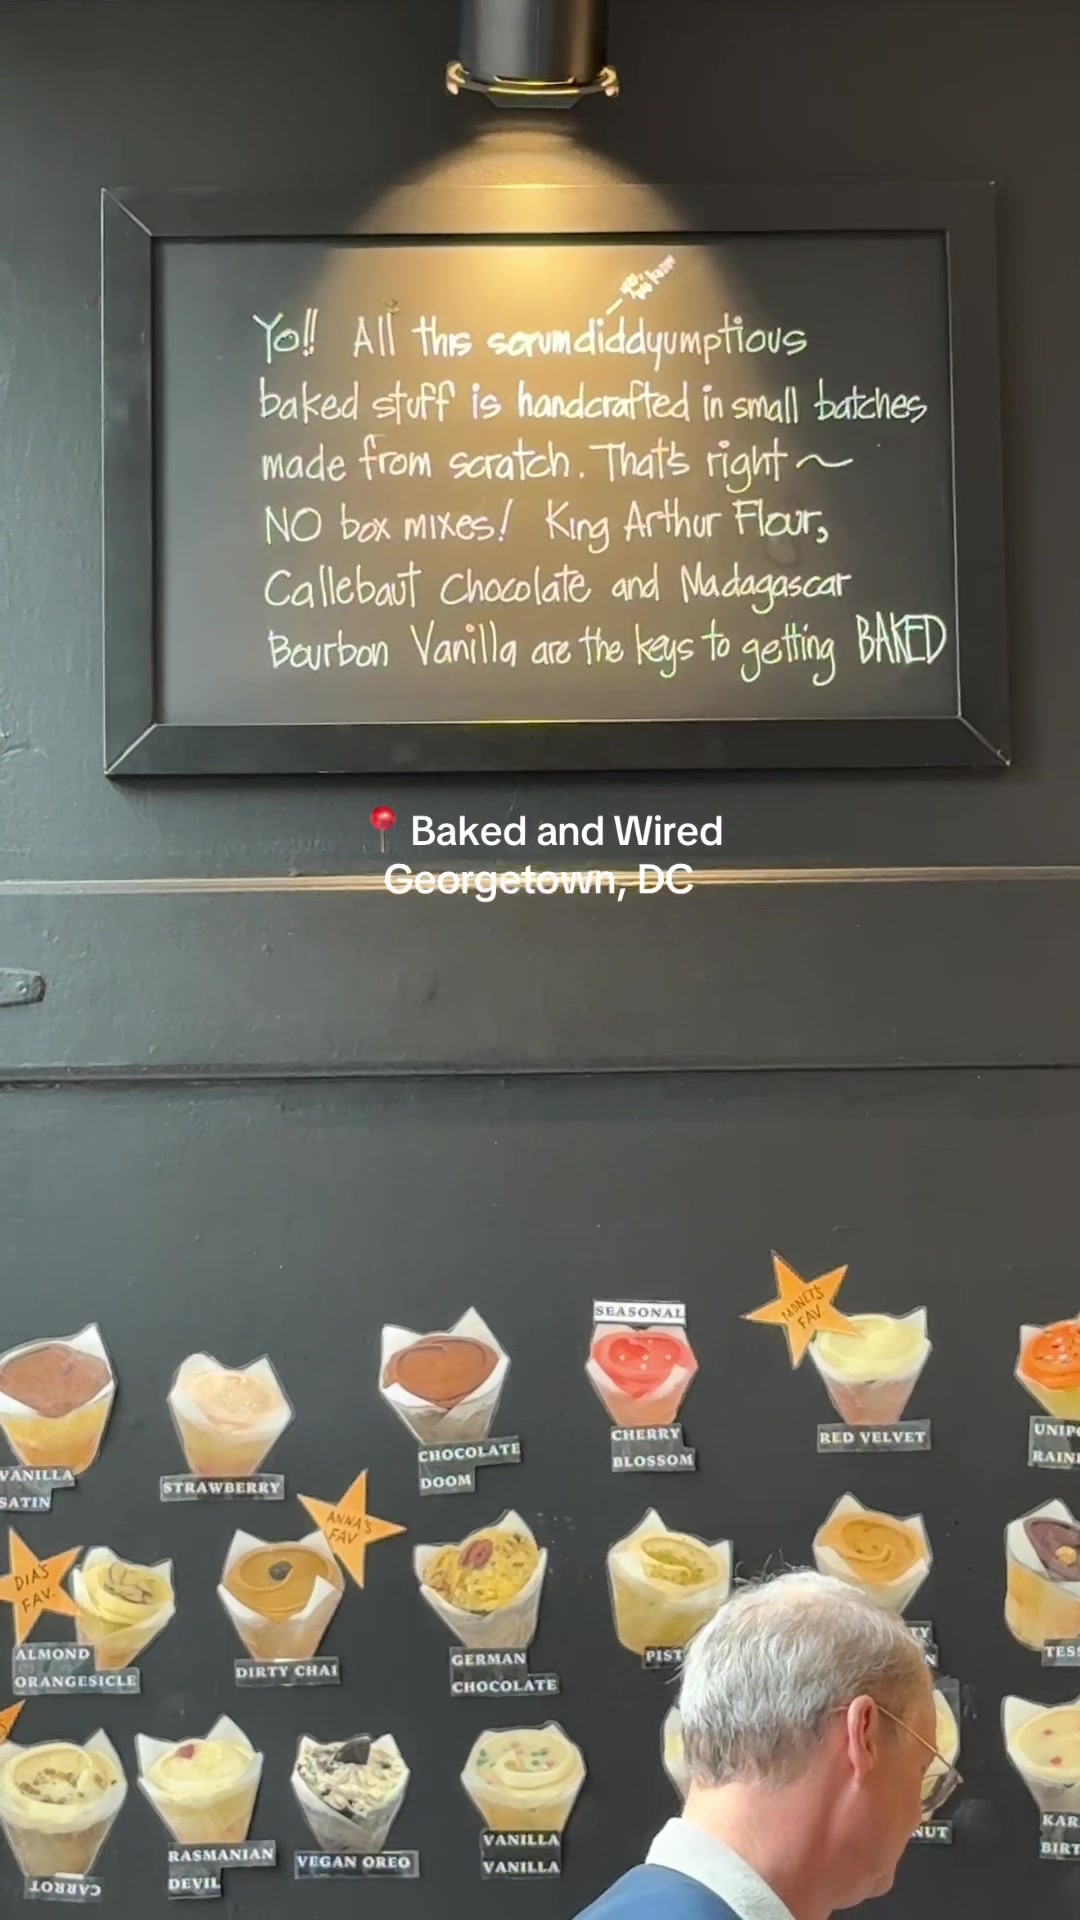 Yo!! All this scrumdiddyumptious
baked stuff is handcrafted in small batches
made from scratch. That's right ~
NO box mixes! King Arthur Flour,
Callebaut Chocolate and Madagascar
Bourbon Vanilla are the keys to getting BAKED
📍 Baked and Wired
Georgetown, DC
VANILLA
SATIN
STRAWBERRY
CHOCOLATE
DOOM
SEASONAL
CHERRY
BLOSSOM
MONET'S
FAV
RED VELVET
DIA'S
FAV.
ALMOND
ORANGESICLE
ANNA'S
FAV
DIRTY CHAI
GERMAN
CHOCOLATE
CARROT
RASMANIAN
DEVIL
VEGAN OREO
VANILLA
VANILLA